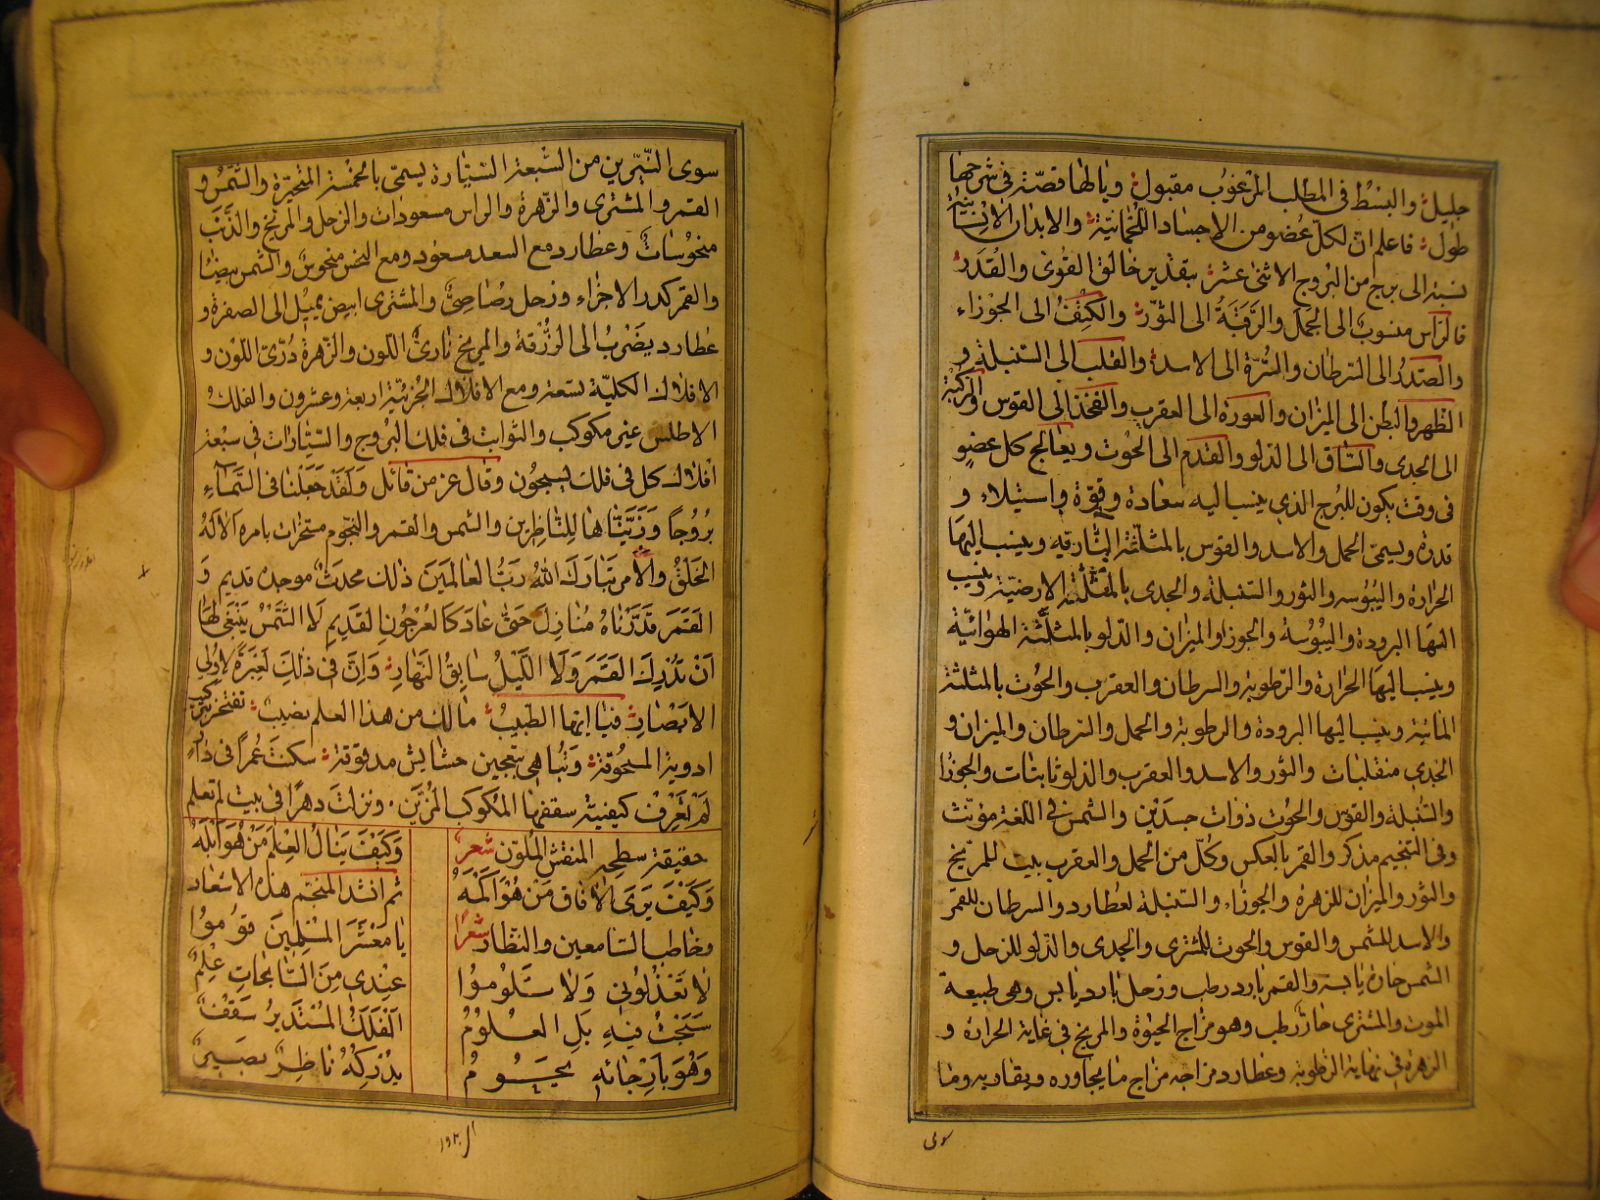 جليل والبسط فى المطلب المرغوب مقبول ويالها قصّة فى شرحها
طول فاعلم انّ لكلّ عضو من الاجساد اللّحمانيّة والابدان الانسانيّة
نسبة الى برج من البروج الاثنى عشر بتقدير خالق القوى والقدر
فالرّاس منسوب الى الحمل والرّقبة الى الثّور والكتف الى الجوزاء
والصّدر الى السّرطان والسّرّة الى الاسد والقلب الى السّنبلة و
الظّهر والبطن الى الميزان والعورة الى العقرب والفخذ الى القوس والرّكبة
الى الجدى والسّاق الى الدّلو والقدم الى الحوت ويعالج كل عضو
فى وقت يكون للبرج الذى ينسب اليه سعادة وقوّة واستيلاء و
قدرة ويسمّى الحمل والاسد والقوس بالمثلّثة النّاريّه وينسب اليها
الحرارة واليبوسه والثور والسّنبلة والجدى بالمثلّثة الارضيّة وينسب
اليها البرودة واليبوسة والجوزا والميزان والدّلو بالمثلّثة الهوائيّة
وينسب اليها الحرارة والرّطوبة والسرطان والعقرب والحوت بالمثلثة
المائيّة وينسب اليها البرودة والرطوبة والحمل والسّرطان والميزان و
الجدى منقلبات والثور والاسد والعقرب والدلو ثابتات والجوزا
والسّنبلة والقوس والحوت ذوات جسدين والشمس فى اللّغة مؤنّث
وفى التنجيم مذكر والقمر بالعكس وكلّ من الحمل والعقرب بيت للمرّيخ
والثور والميزان للزهرة والجوزاء والسّنبلة لعطارد والسرطان للقمر
والاسد للشمس والقوس والحوت للمشترى والجدى والدّلو للزحل و
الشمس حارة يابسة والقمر بارد رطب وزحل بارد يابس وهى طبيعة
الموت والمشترى حارّ رطب وهو مزاج الحيوة والمريخ فى غاية الحرارة و
الزهرة فى نهاية الرّطوبة وعطارد مزاجه مزاج ما يجاوره ويقاربه وما
سوى
سوى النّيّرين من السّبعة السّيّارة يسمّى بالخمسة المتحيّرة والشّمس و
القمر والمشترى والزّهرة والراس مسعودات والزحل والمريخ والذّنب
منحوسات وعطارد مع السعد مسعود ومع النحس منحوس والشمس بيضا
والقمر كدر الاجزاء وزحل رصاصىّ والمشترى ابيض يميل الى الصفرة و
عطارد يضرب الى الزّرقة والمريخ نارىّ اللّون والزّهرة درّىّ اللّون و
الافلاك الكليّة تسعة ومع الافلاك الجزئيّة اربعة وعشرون والفلك
الاطلس غير مكوكب والثوابت فى فلك البروج والسيّارات فى سبعة
افلاك كل فى فلك يسبحون وقال عز من قائل ولقد جعلنا فى السّمآء
بروجاً وزيّنّاها للنّاظرين والشمس والقمر والنّجوم مسخرات بامره الا له
الخلق والامر تبارك الله ربّ العالمين ذلك محدث موجد قديم و
القمر قدّرناه منازل حتّى عاد كالعرجون القديم لا الشّمس ينبغى لها
ان تدرك القمر ولا اللّيل سابق النّهار وانّ فى ذلك لعبرة لاولى
الابصار فيا ايّها الطبيب مالك من هذا العلم نصيب تفتخر بتركيب
ادوية المسحوقة وتباهى بتعجين حشايش مدقوقة سكنت عمراً فى دار
لم تعرف كيفيّة سقفها المكوكب المزيّن ونزلت دهراً فى بيت لم تعلم
حقيقة سطحه المنقش الملوّن شعر وكيف ينال العلم من هو ابله
وكيف يرى الافاق من هو اكمه ثم انشد المنجّم هذه الاشعار
وخاطب السّامعين والنظّار شعرا يا معشر المسلمين قوموا
لا تعذلونى ولا تلوموا عندى من السّابحات علم
سبحت فيه بل العلوم الفلك المستدير سقف
وهو بارجائه يحوم يدركه ناظر بصير